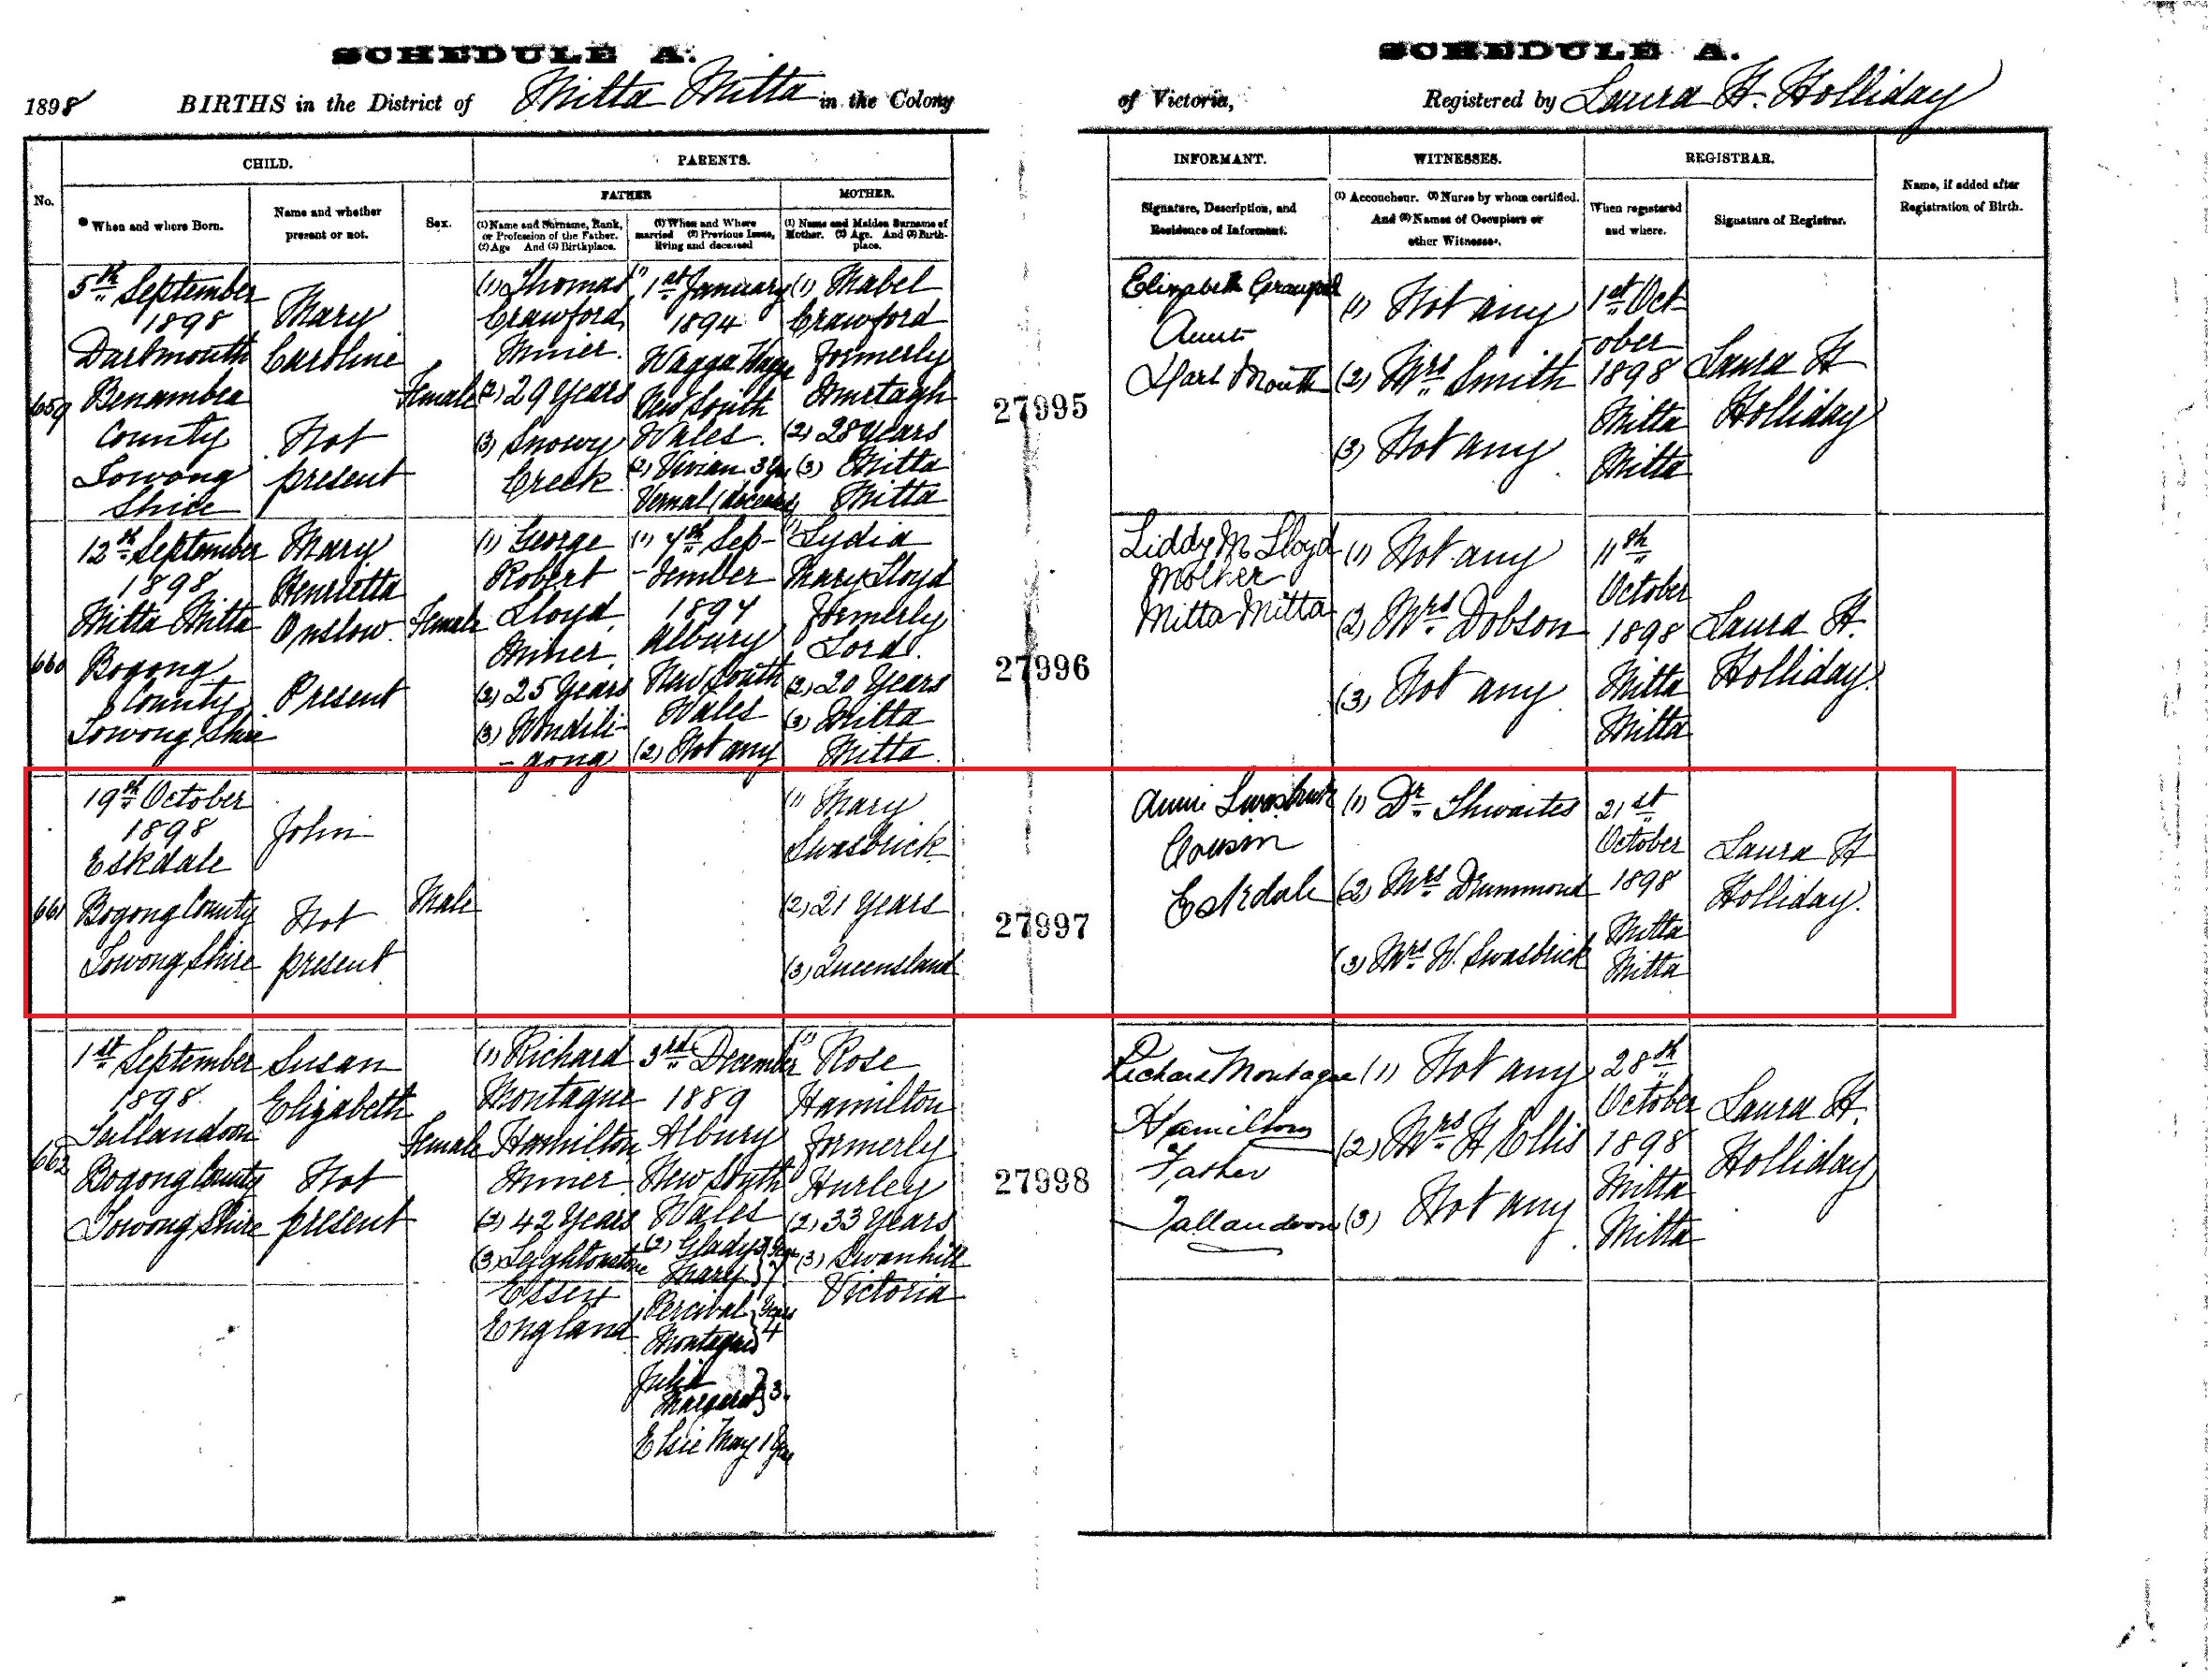 SCHEDULE A.
1898 BIRTHS in the District of Mitta Mitta in the Colony
CHILD.
PARENTS.
No.
When and where Born.
Name and whether
present or not.
Sex.
FATHER
(1) Name and Surname, Rank,
or Profession of the Father.
(2) Age And (3) Birthplace.
(1) When and Where
married (2) Previous Issue,
living and deceased
MOTHER.
(1) Name and Maiden Surname of
Mother. (2) Age. And (3) Birth-
place.
659
5th September
1898
Dartmouth
Benambra
County
Towong
Shire
Mary
Caroline
Not
present
Female
(1) Thomas
Crawford
Miner.
(2) 29 Years
(3) Snowy
Creek
(1) 1st January
1894
Wagga Wagga
New South
Wales.
(2) Vivian 3
Vernal (deceased)
(1) Mabel
Crawford
formerly
(2) 28 Years
(3) Mitta
Mitta
660
12th September
1898
Mitta Mitta
Bogong
County
Towong Shire
Mary
Henrietta
Onslow.
Present
Female
(1) George
Robert
Lloyd
Miner.
(2) 25 Years
(3) Wandili-
-gong
(1) 4th Sep-
-tember
1897
Albury
New South
Wales
(2) Not any
(1) Lydia
Mary Lloyd
formerly
Lord.
(2) 20 Years
(3) Mitta
Mitta.
661
19th October
1898
Eskdale
Bogong County
Towong Shire
John
Not
present
Male
(1) Mary
Swasbrick
(2) 21 Years
(3) Queensland
662
1st September
1898.
Tallandoon
Bogong County
Towong Shire
Susan
Elizabeth
Not
present
Female
(1) Richard
Montague
Hamilton
Miner.
(2) 42 Years
(3) Leightonstone
Essex
England
3rd December
1889
Albury
New South
Wales
(2) Gladys
Mary 7
Percival Years
Montague 4
Julia
Margaret 3.
Elsie May 1
(1) Rose
Hamilton
formerly
Hurley
(2) 33 Years
(3) Swanhill
Victoria
27995
27996
27997
27998
SCHEDULE A.
of Victoria, Registered by Laura H. Holliday
INFORMANT.
WITNESSES.
REGISTRAR.
Signature, Description, and
Residence of Informant.
(1) Accoucheur. (2) Nurse by whom certified.
And (3) Names of Occupiers or
other Witnesses.
When registered
and where.
Signature of Registrar.
Name, if added after
Registration of Birth.
Elizabeth
Aunt
Dart Mouth
(1) Not any
(2) Mrs Smith
(3) Not any
1st Oct
-ober
1898
Mitta
Mitta
Laura H
Holliday
Liddy M Lloyd
Mother
Mitta Mitta
(1) Not any
(2) Mrs Dobson
(3) Not any
11th
October
1898
Mitta
Mitta
Laura H.
Holliday.
Annie Swasbrick
Cousin
Eskdale
(1) Dr Thwaites
(2) Mrs Drummond
(3) Mrs W. Swasbrick
21st
October
1898
Mitta
Mitta
Laura H
Holliday.
Richard Montague
Hamilton
Father
Tallandoon
(1) Not any
(2) Mrs H Ellis
(3) Not any
28th
October
1898
Mitta
Mitta
Laura H.
Holliday